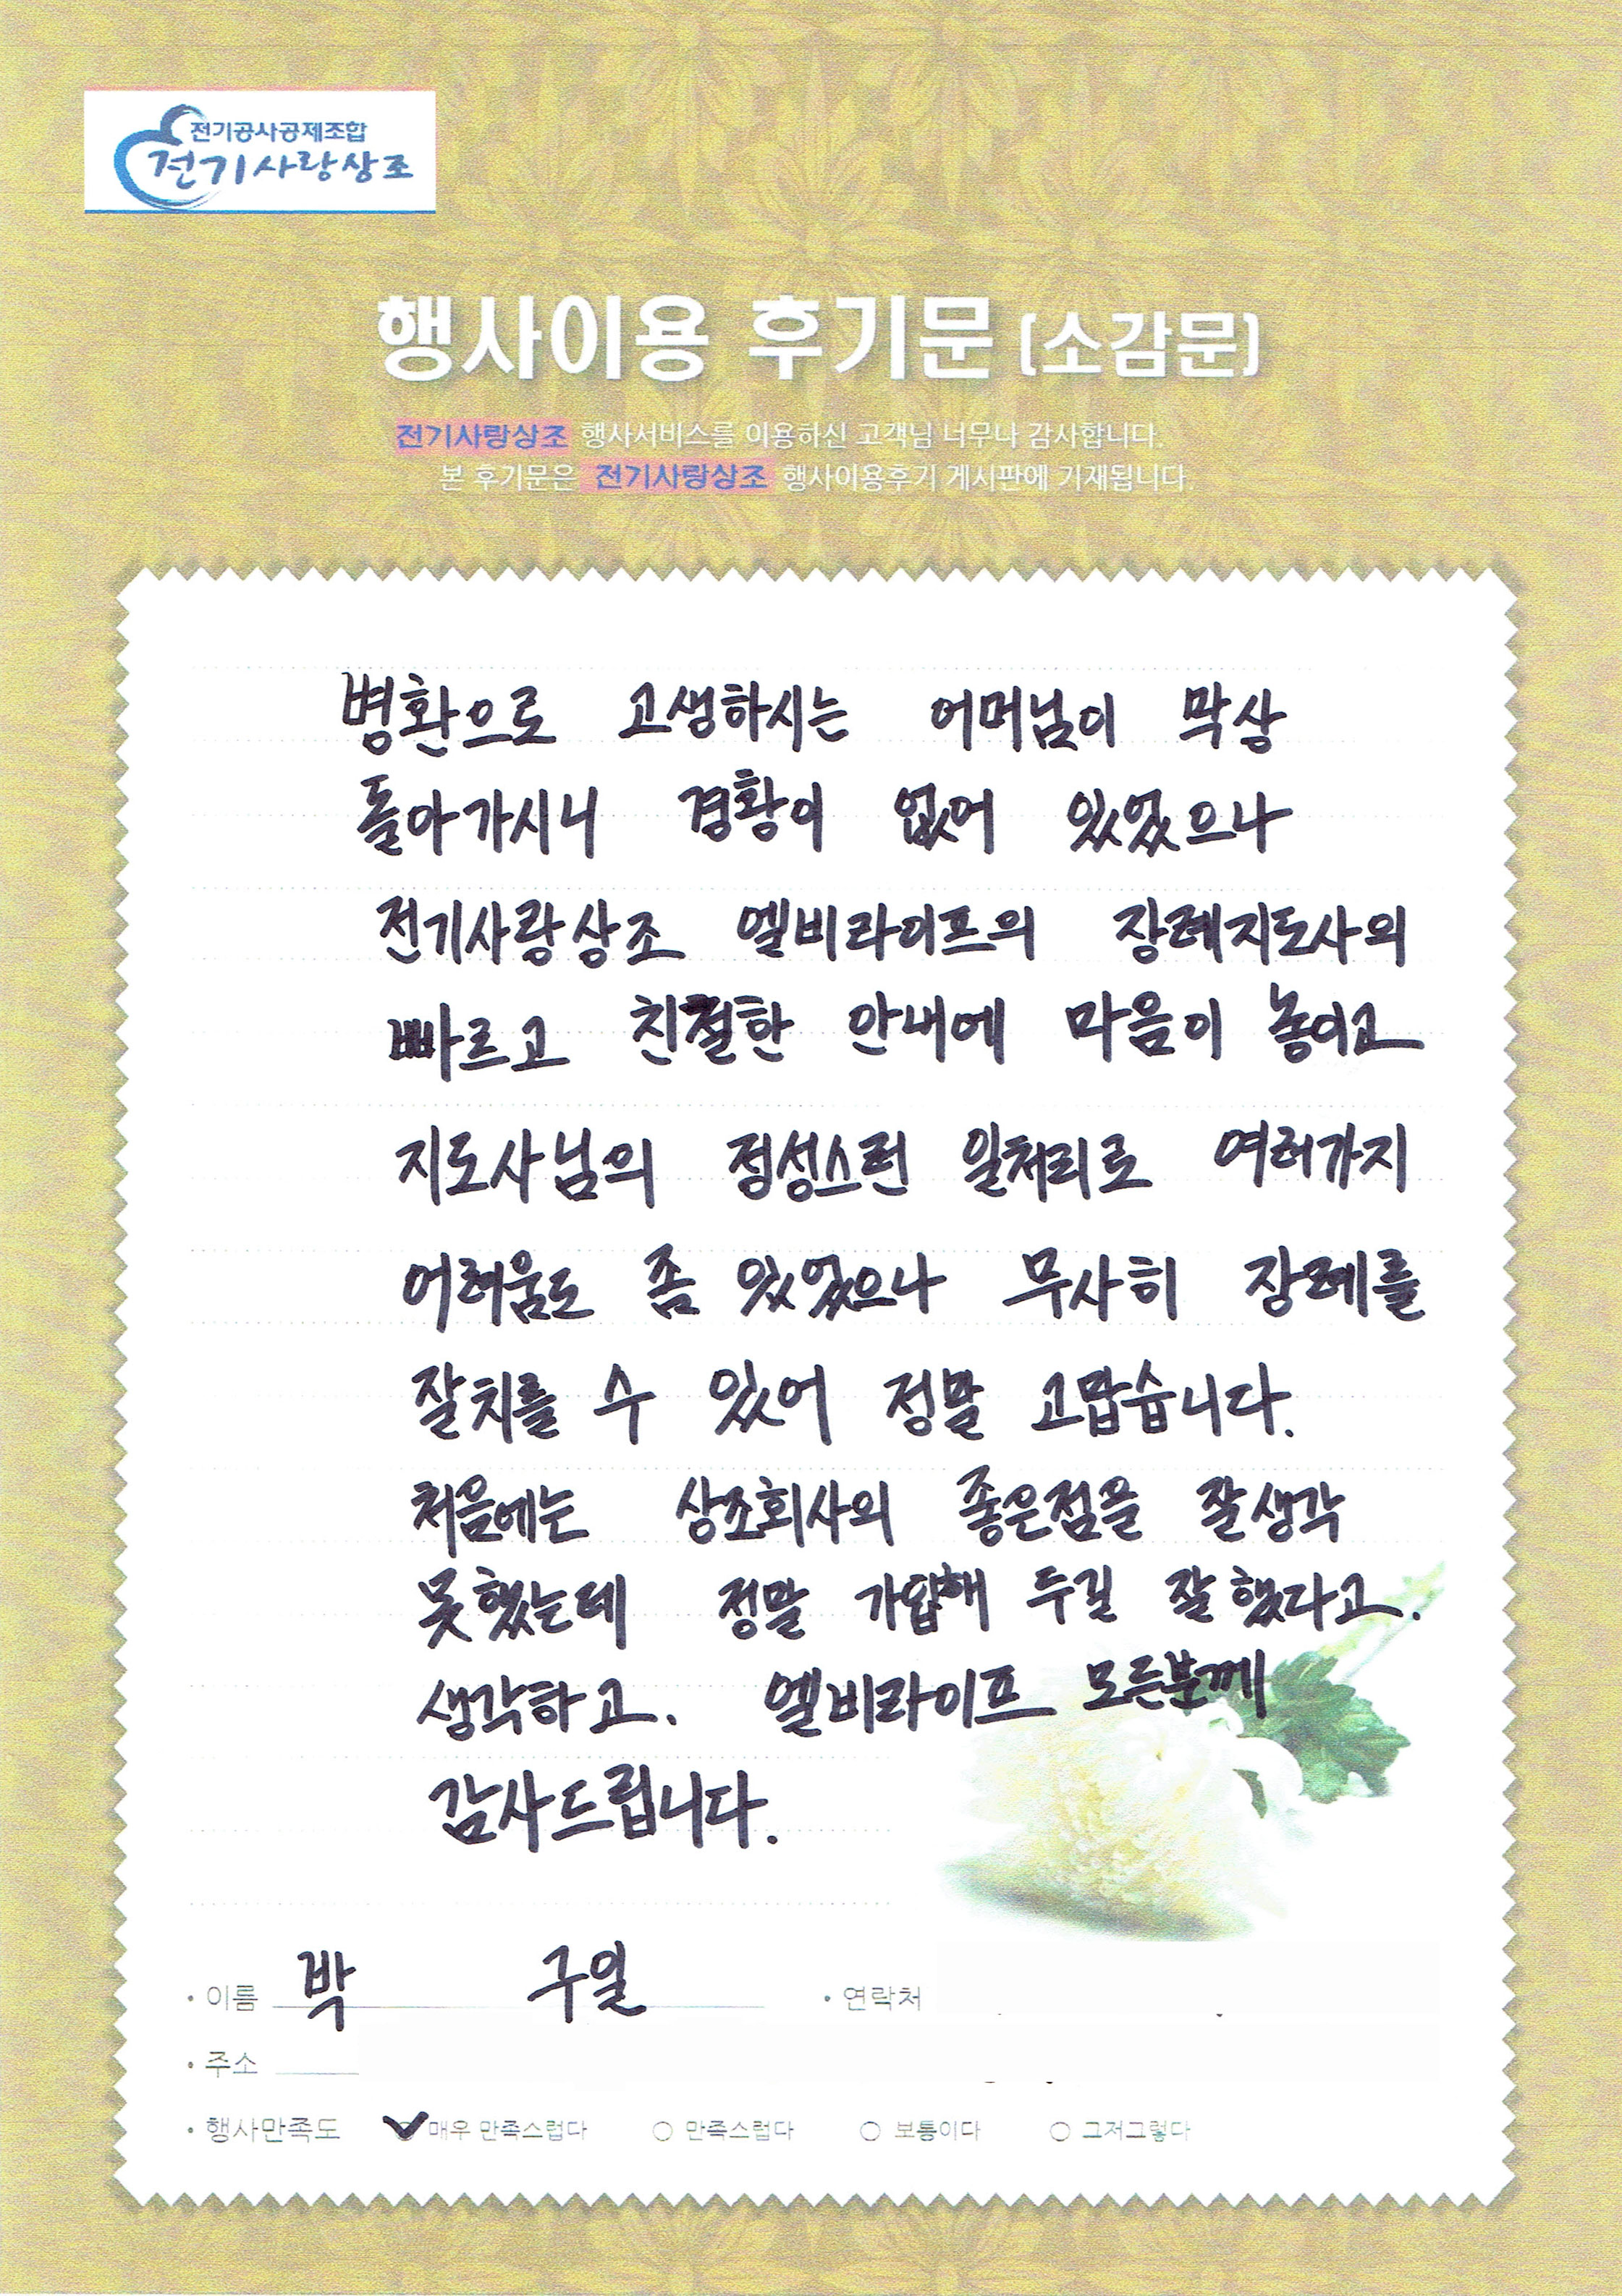 전기공사공제조합
전기사랑상조
행사이용 후기문 (소감문)
전기사랑상조 행사서비스를 이용하신 고객님 너무나 감사합니다.
본 후기문은 전기사랑상조 행사이용후기 게시판에 기재됩니다.
병환으로 고생하시는 어머님이 막상
돌아가시니 경황이 없어 있었으나
전기사랑상조 엘비라이프의 장례지도사의
빠르고 친절한 안내에 마음이 놓이고
지도사님의 정성스런 일처리로 여러가지
어려움도 좀 있었으나 무사히 장례를
잘치를 수 있어 정말 고맙습니다.
처음에는 상조회사의 좋은점을 잘생각
못했는데 정말 가입해 두길 잘했다고.
생각하고. 엘비라이프 모든분께
감사드립니다.
• 이름 박 구일 • 연락처
• 주소
• 행사만족도 매우 만족스럽다 만족스럽다 보통이다 그저그렇다